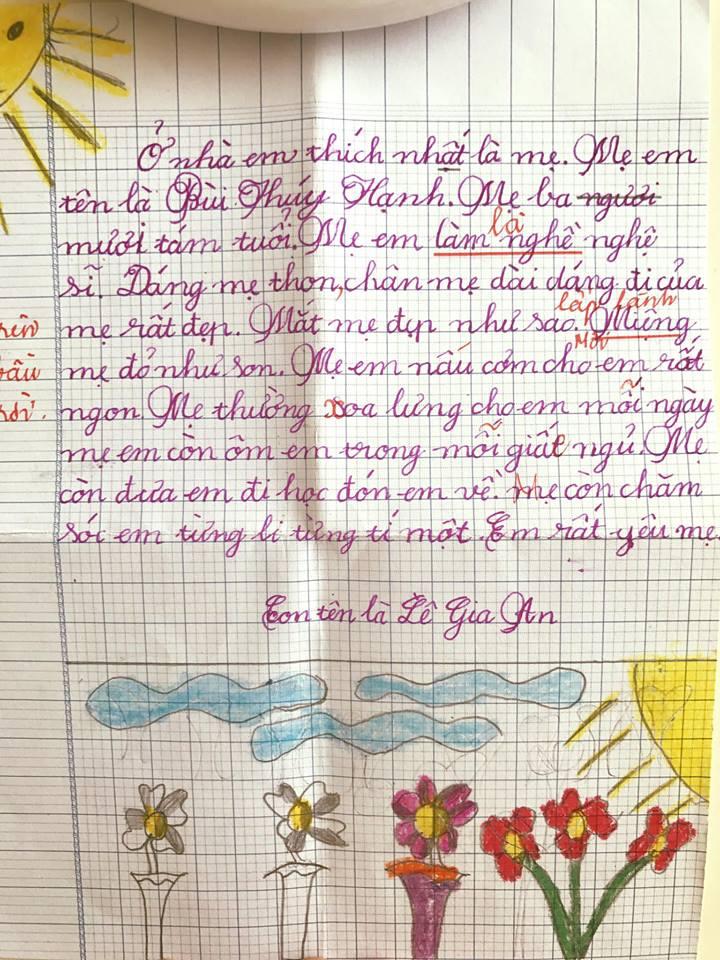 Ở nhà em thích nhất là mẹ. Mẹ em
tên là Bùi Thúy Hạnh. Mẹ ba người
là
mươi tám tuổi. Mẹ em làm nghề nghệ
sĩ. Dáng mẹ thon, chân mẹ dài dáng đi của
lấp lánh
mẹ rất đẹp. Mắt mẹ đẹp như sao. Mừng
Môi
mẹ đỏ như son. Mẹ em nấu cơm cho em rất
ngon. Mẹ thường xoa lưng cho em mỗi ngày
mẹ em còn ôm em trong mỗi giất ngủ. Mẹ
còn đưa em đi học đón em về. Mẹ còn chăm
sóc em từng li từng tí một. Em rất yêu mẹ.
Con tên là Lê Gia An